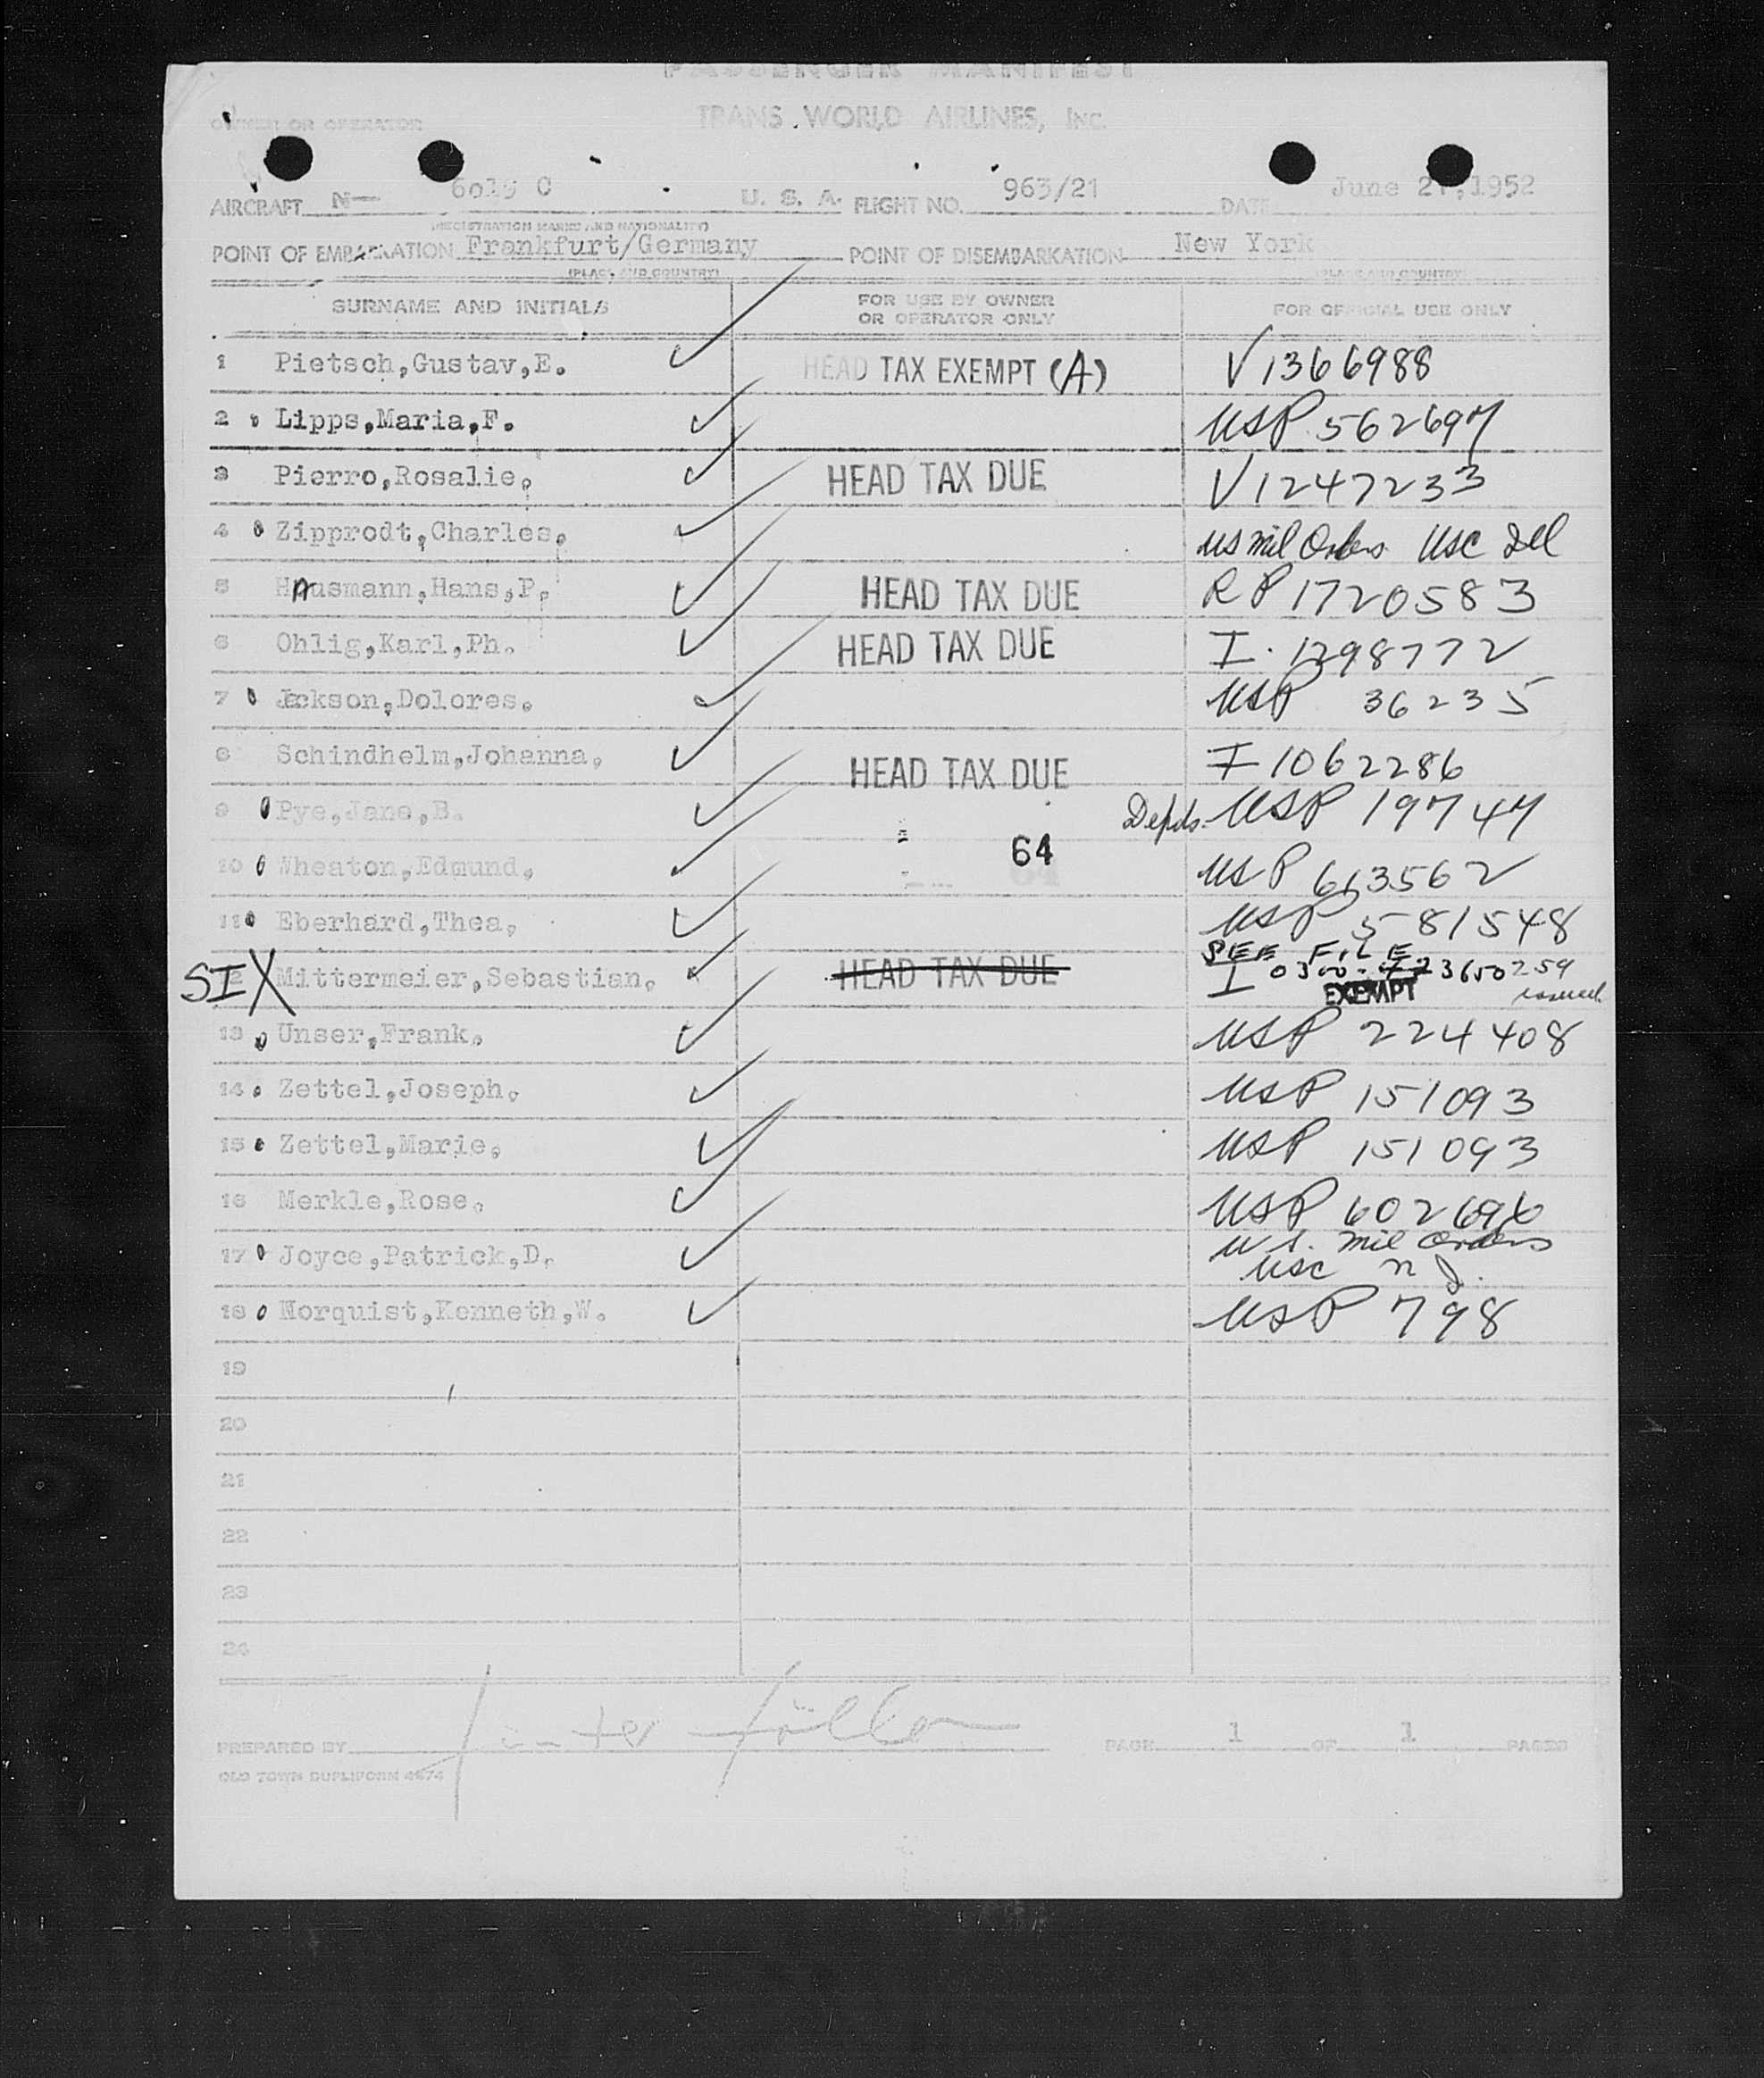 PASSENGER MANIFEST
TRANS WORLD AIRLINES, INC.
OWNER OR OPERATOR
AIRCRAFT N— 6015 C U. S. A. FLIGHT NO. 963/21 DATE June 21,1952
(REGISTRATION MARKS AND NATIONALITY)
POINT OF EMBARKATION Frankfurt/Germany POINT OF DISEMBARKATION New York
(PLACE AND COUNTRY) (PLACE AND COUNTRY)
SURNAME AND INITIALS FOR USE BY OWNER OR OPERATOR ONLY FOR OFFICIAL USE ONLY
1 Pietsch,Gustav,E. HEAD TAX EXEMPT (A) V 1366988
2 Lipps,Maria,F. USP 562697
3 Pierro,Rosalie, HEAD TAX DUE V1247233
4 Zipprodt,Charles, US Mil Orders USC Ill
5 HAusmann,Hans,P, HEAD TAX DUE RP 1720583
6 Ohlig,Karl,Ph. HEAD TAX DUE I. 1298772
7 Jackson,Dolores. USP 36235
8 Schindhelm,Johanna, HEAD TAX DUE I 1062286
9 Pye,Jane,B. Depds. USP 19747
64
10 Wheaton,Edmund, USP 613562
11 Eberhard,Thea, USP 581548
SEE FILE
SI X Mittermeier,Sebastian, HEAD TAX DUE I 0300- 723650259
EXEMPT issued
13 Unser,Frank. USP 224408
14 Zettel,Joseph. USP 151093
15 Zettel,Marie, USP 151093
16 Merkle,Rose. USP 602696
17 Joyce,Patrick,D. U.S. Mil Orders
USC N J.
18 Norquist,Kenneth,W. USP 798
19
20
21
22
23
24
PREPARED BY PAGE 1 OF 1 PAGES
OLD TOWN DUPLIFORM 4674